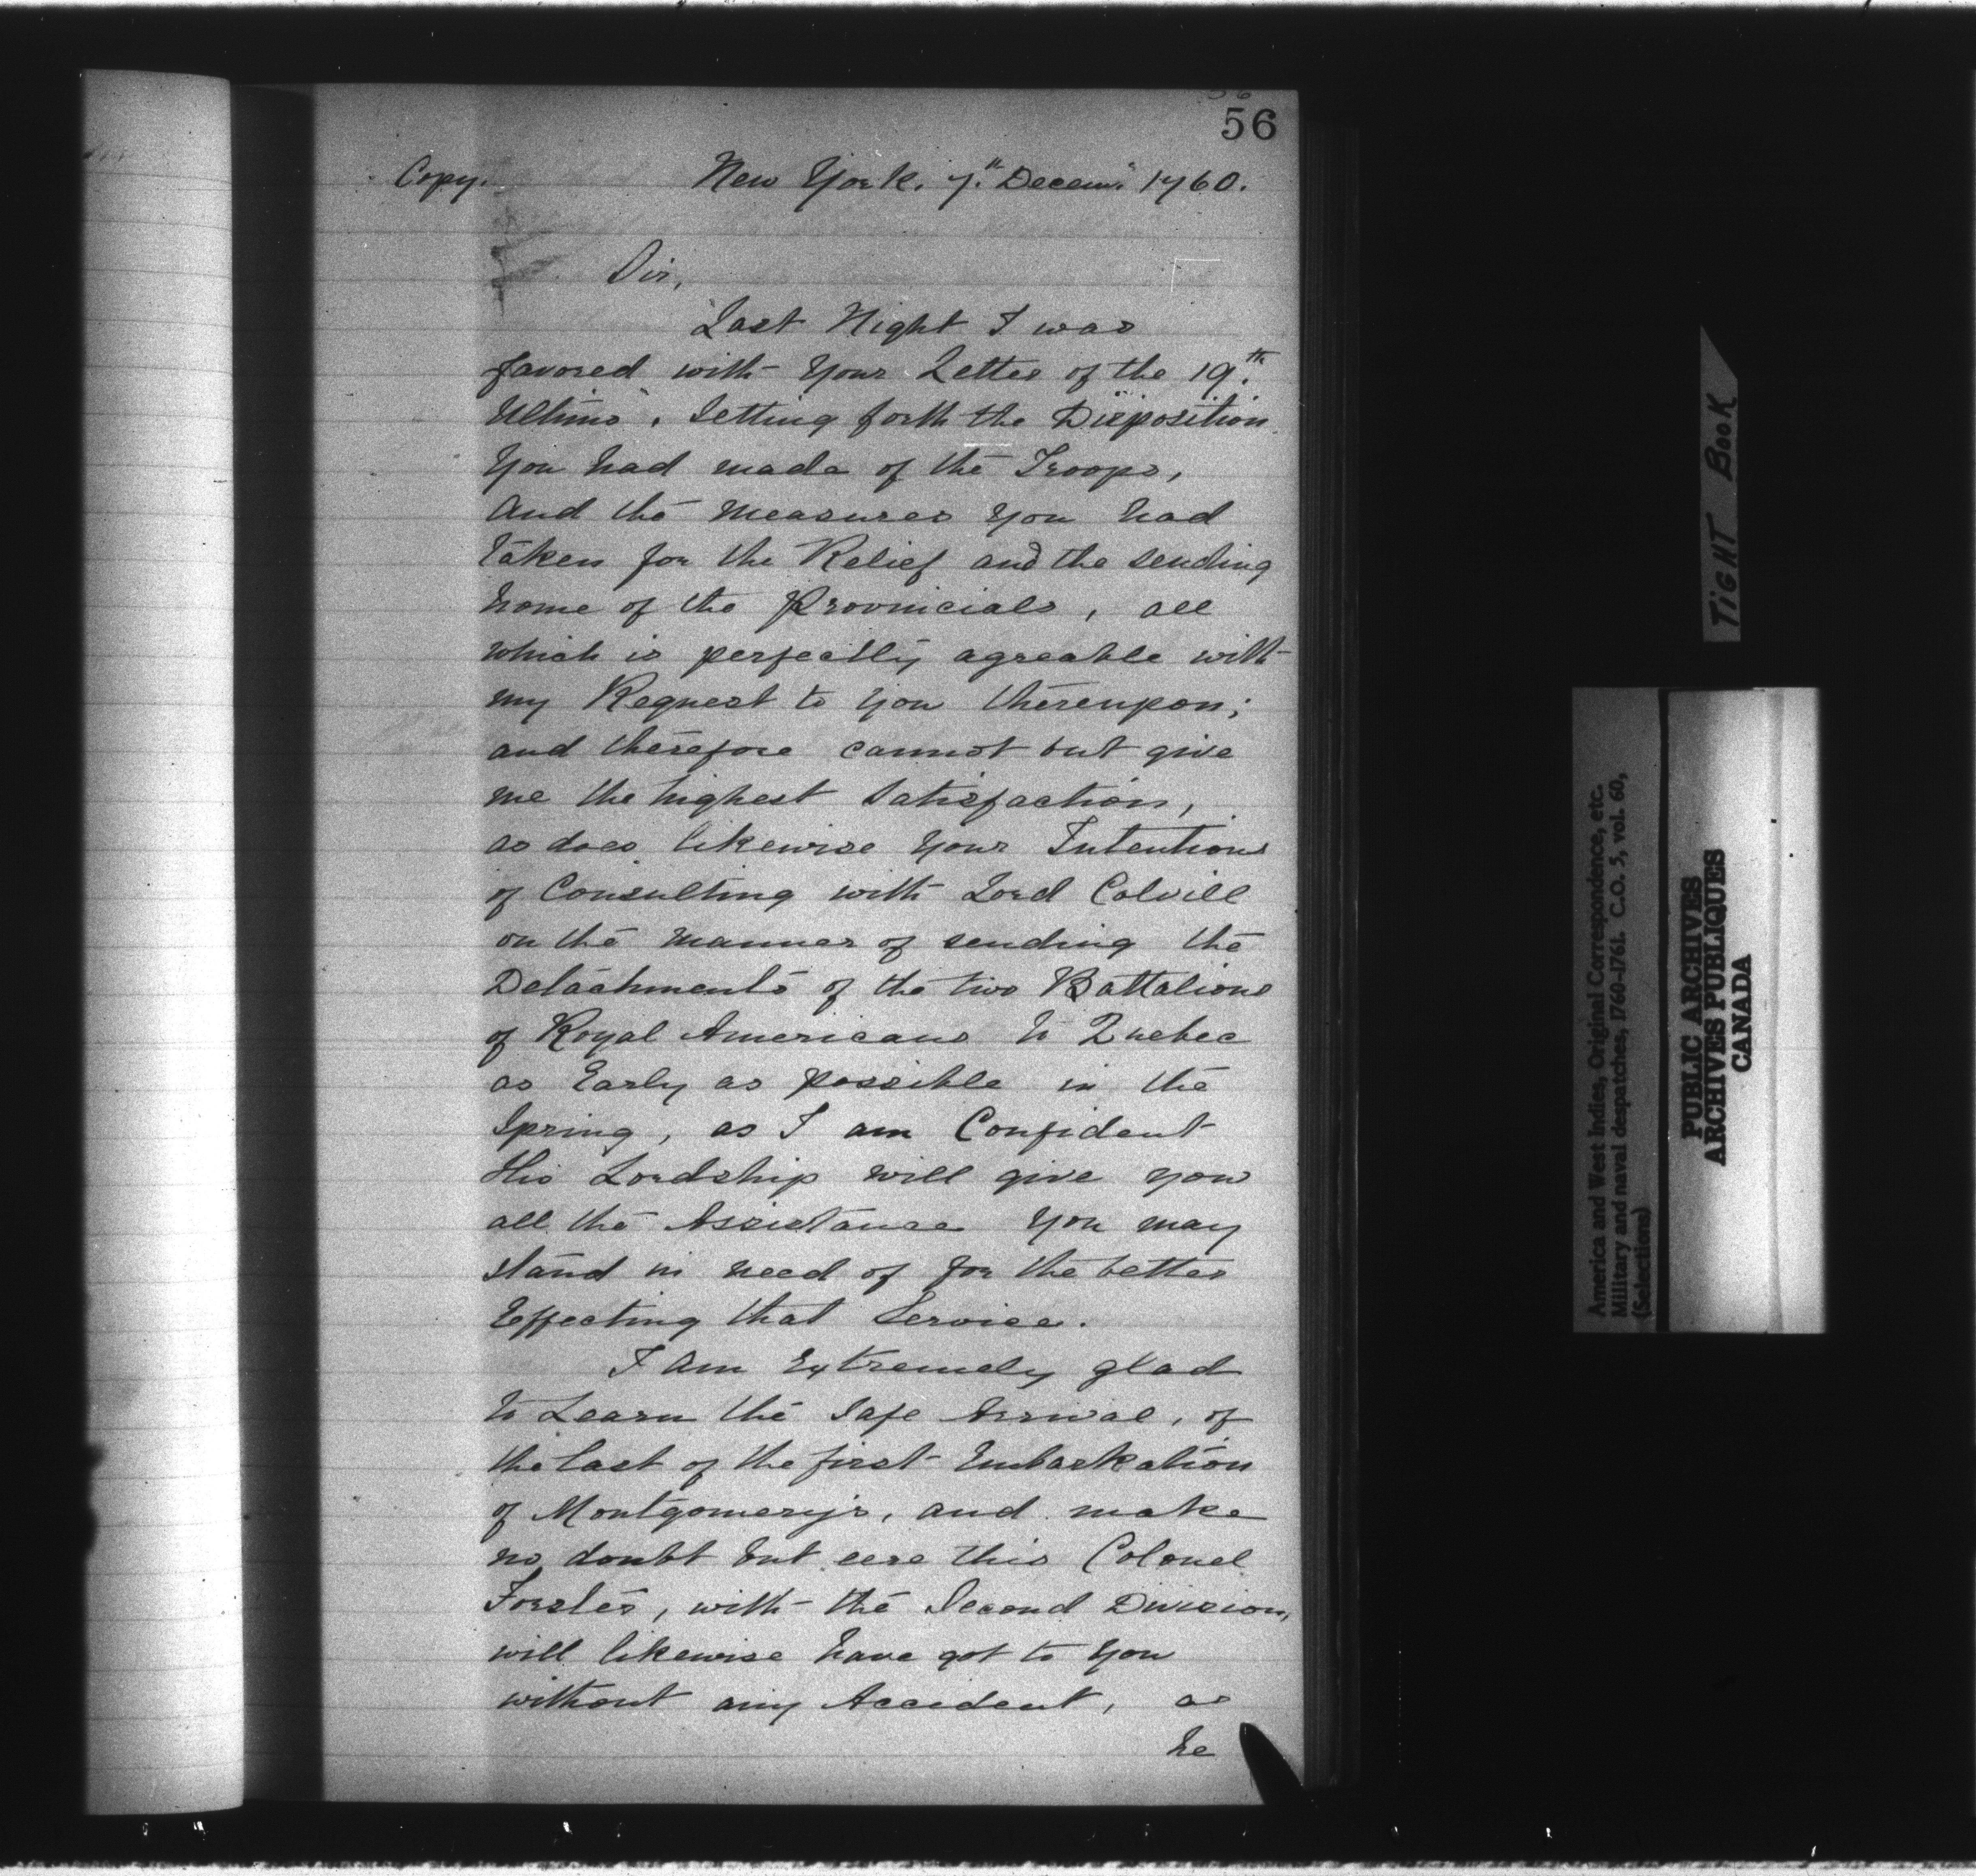 56
Copy.
New York. 7.th Decem.r 1760.
Sir,
Last Night I was
favored with Your Letter of the 19.th
Ultimo, Setting forth the Disposition
You had made of the Troops,
And the Measures You had
taken for the Relief and the sending
home of the Provincials, all
which is perfectly agreable with
my Request to You thereupon;
and therefore cannot but give
me the highest Satisfaction,
as does likewise Your Intentions
of Consulting with Lord Colvill
on the Manner of sending the
Detachments of the two Battalions
of Royal Americans to Quebec
as Early as possible in the
Spring, as I am Confident
His Lordship will give you
all the Assistance You may
stand in need of for the better
Effecting that Service.
I am Extremely glad
to Learn the Safe Arrival, of
the last of the first Embarkation
of Montgomery's, and make
no doubt but eere this Colonel
Forster, with the Second Division,
will likewise have got to You
without any Accident, as
he
TIGHT BOOK
America and West Indies, Original Correspondence, etc.
Military and naval despatches, 1760-1761. C.O. 5, vol. 60,
(Selections)
PUBLIC ARCHIVES
ARCHIVES PUBLIQUES
CANADA